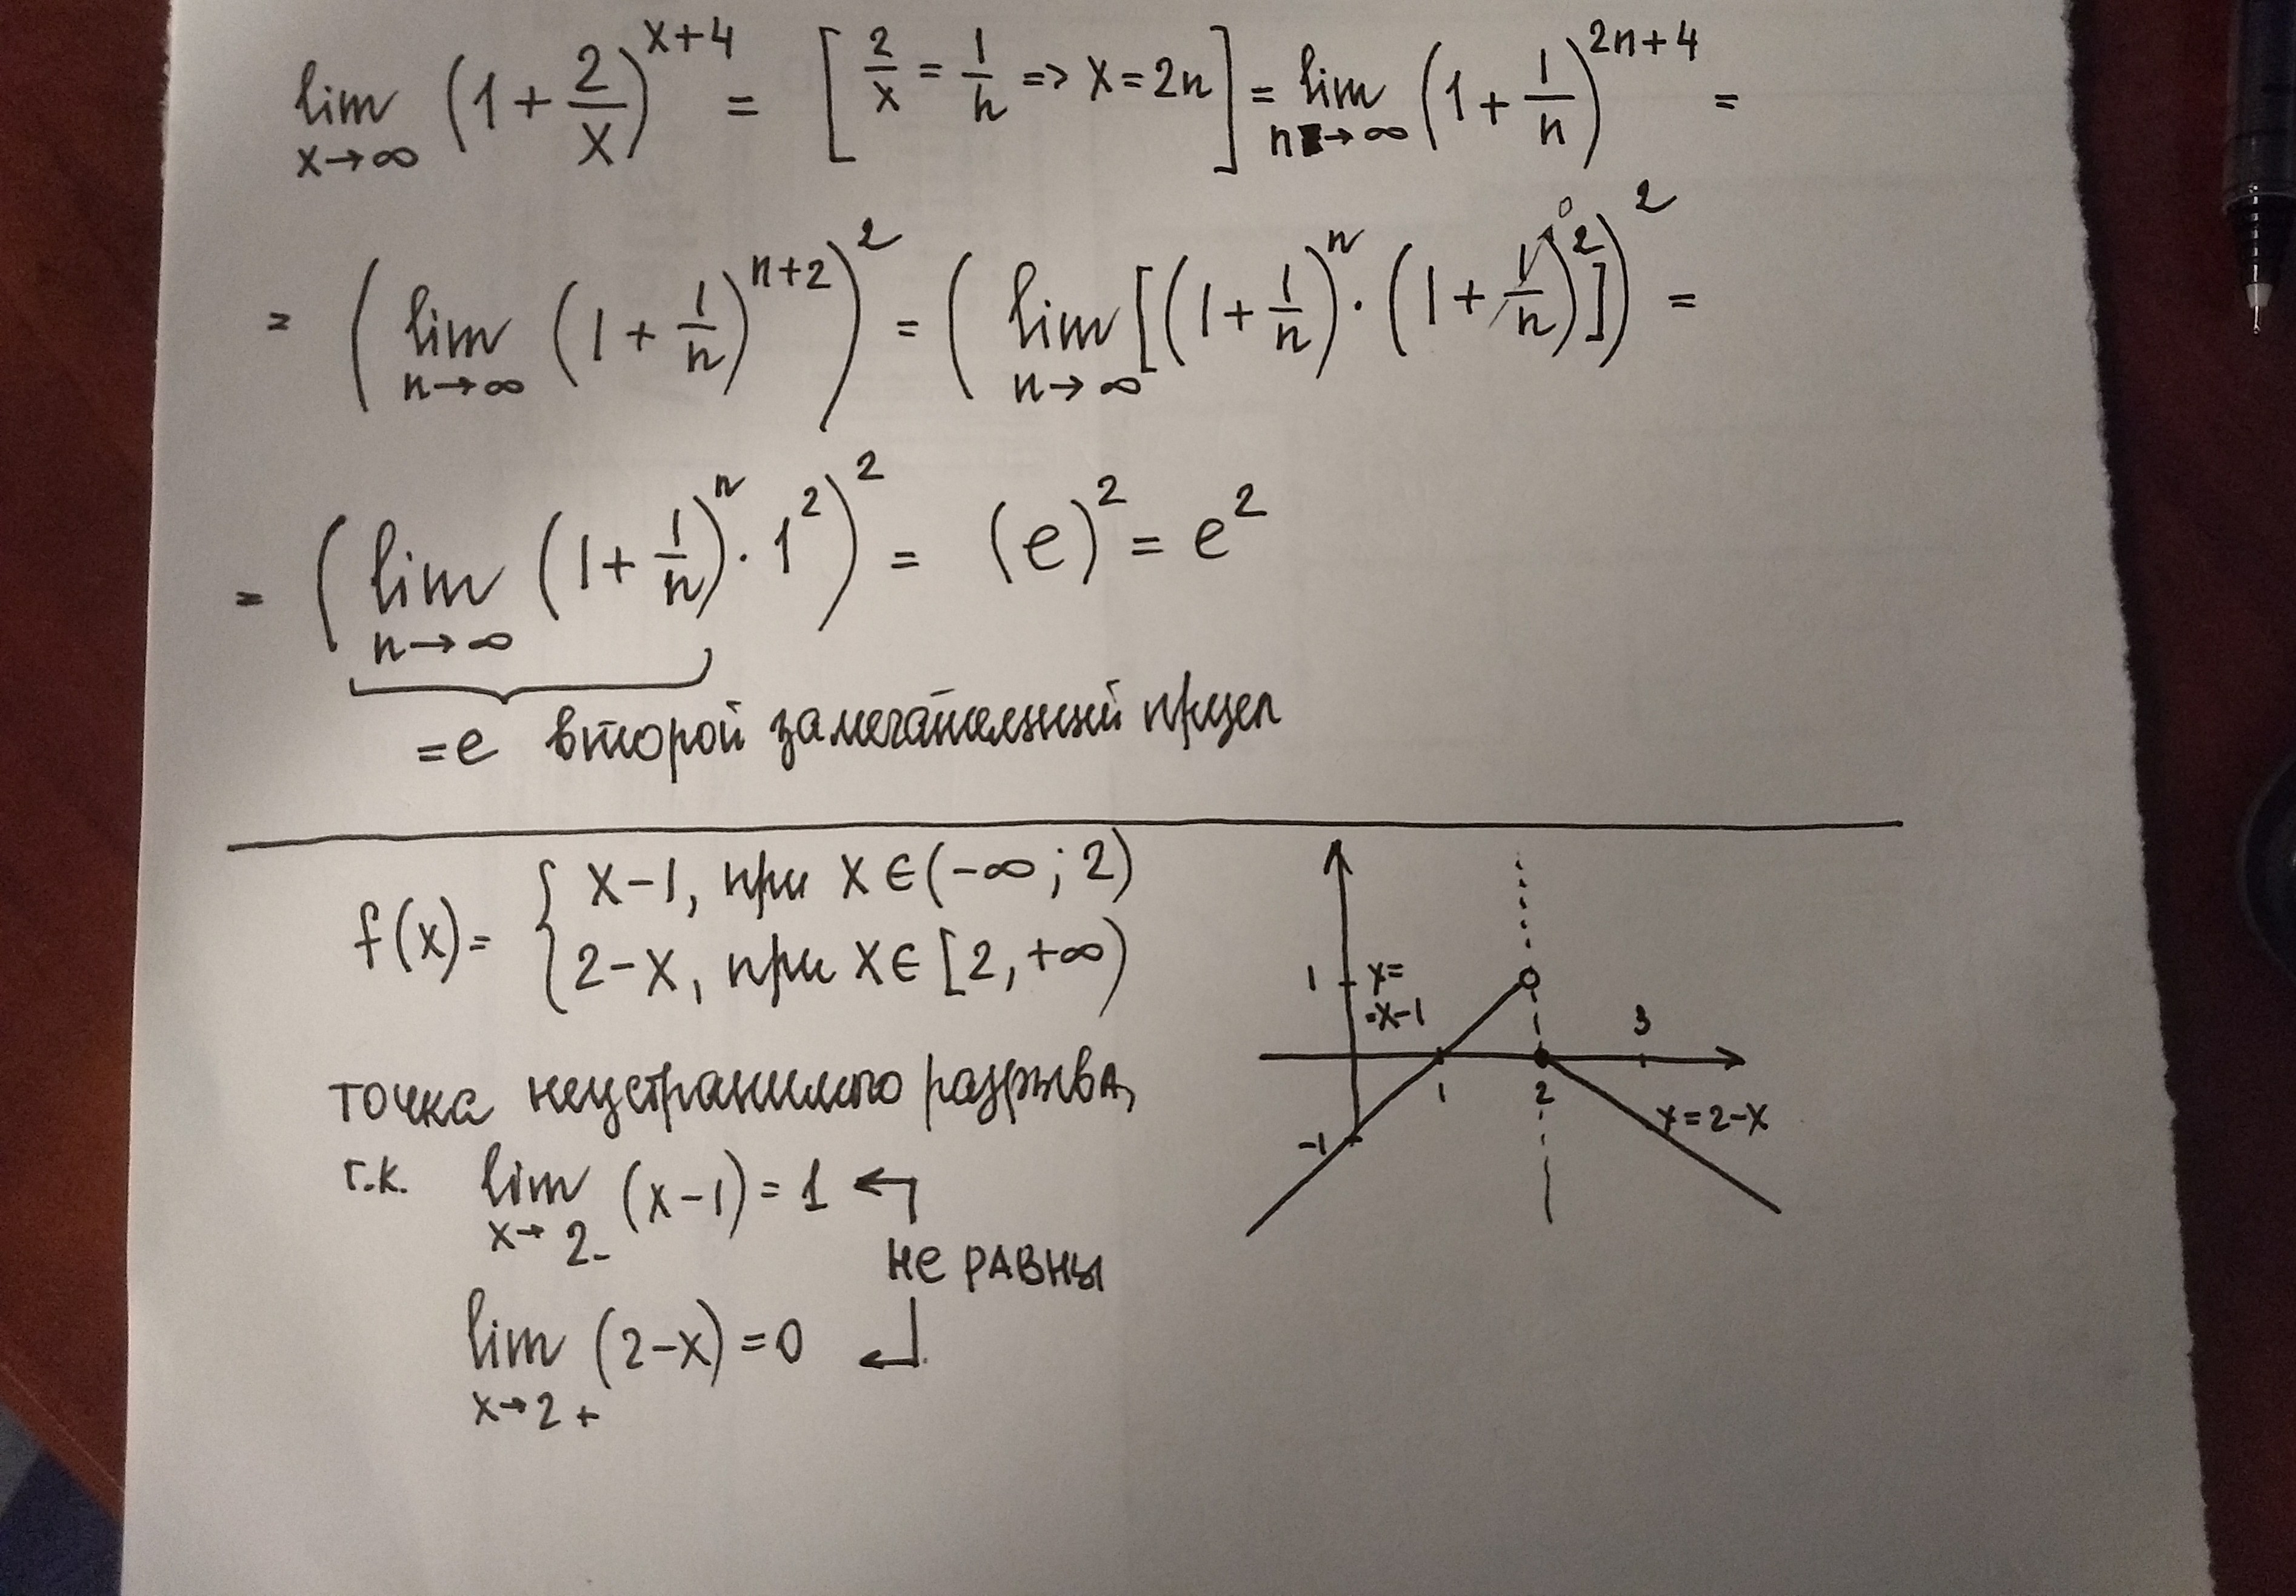 lim x→∞ (1 + 2/x)^(x+4) = [2/x = 1/n => x = 2n] = lim n→∞ (1 + 1/n)^(2n+4) =
= (lim n→∞ (1 + 1/n)^(n+2))^2 = (lim n→∞ [(1 + 1/n)^n · (1 + 1/n)^2])^2 =
0
= (lim n→∞ (1 + 1/n)^n · 1^2)^2 = (e)^2 = e^2
= e второй замечательный предел
f(x) = { x-1, при x ∈ (-∞; 2)
2-x, при x ∈ [2, +∞)
точка неустранимого разрыва,
т.к. lim x→2- (x-1) = 1
не равны
lim x→2+ (2-x) = 0
1 y=
x-1
3
1 2
-1
y=2-x